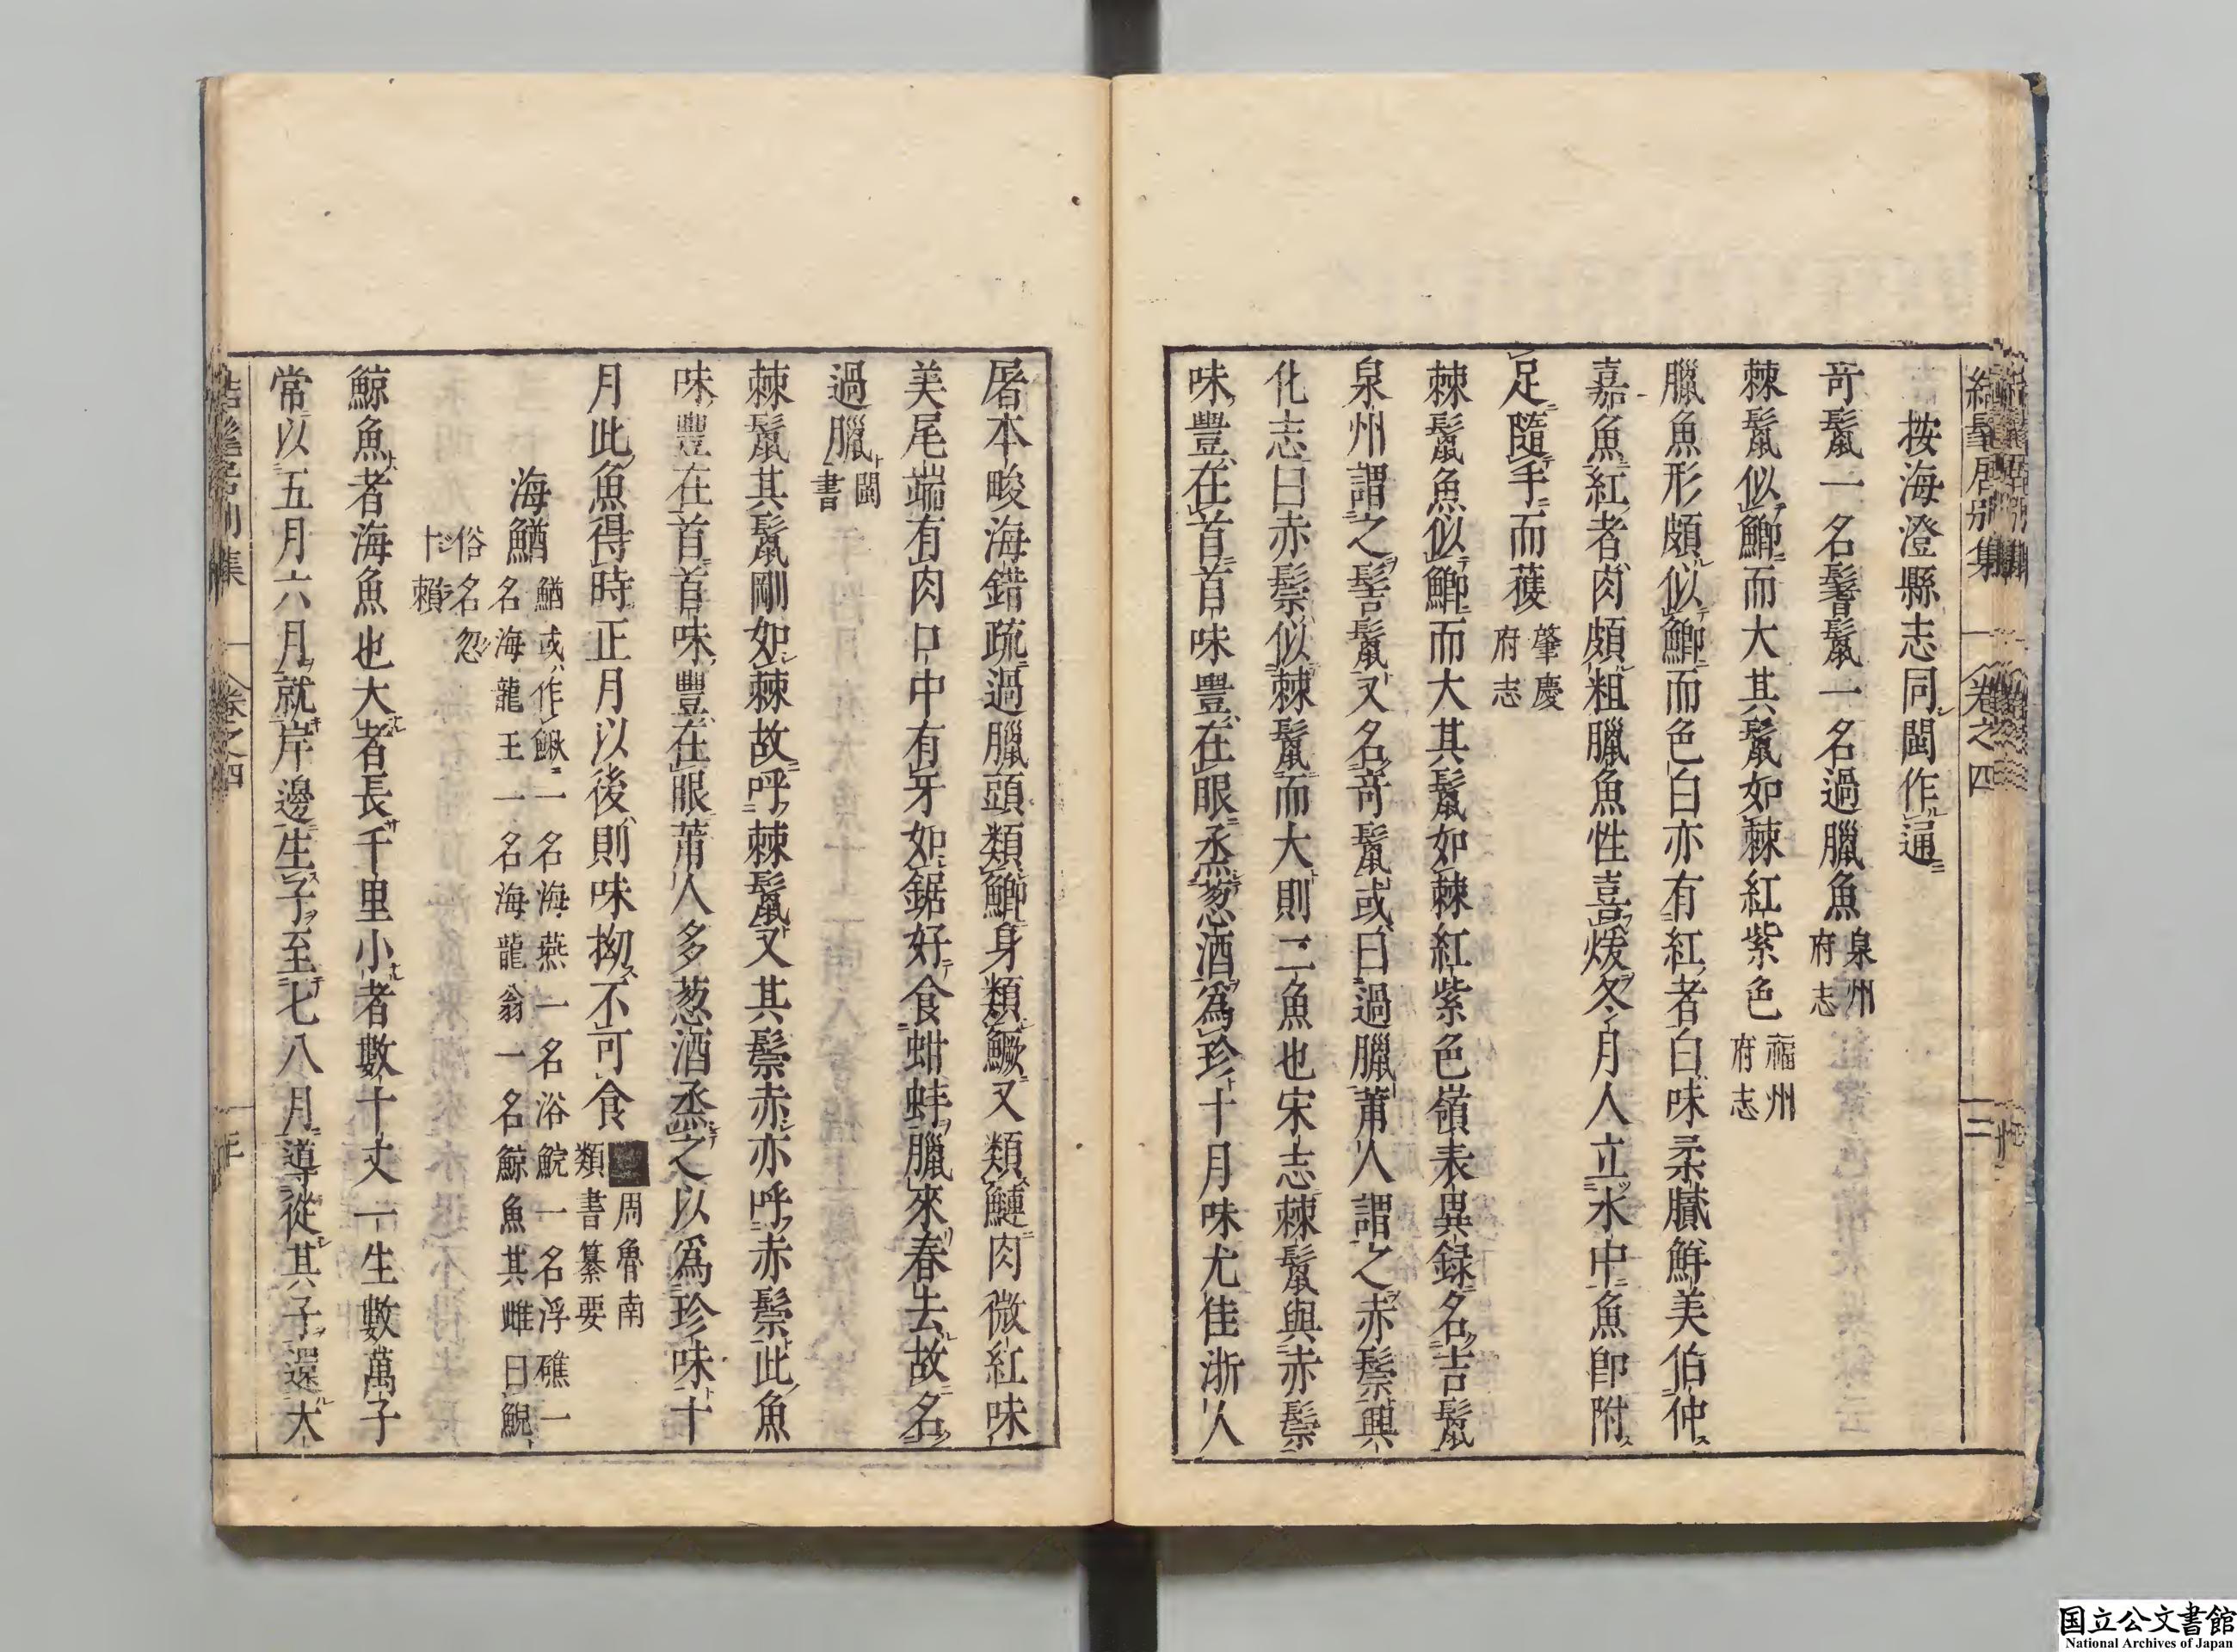 結髦居別集 卷之四 二
按海澄縣志同閩作通
竒鬣一名髻鬣一名過臘魚泉州府志
棘鬣似鯽而大其鬣如棘紅紫色福州府志
臘魚形頗似鯽而色白亦有紅者白味柔膩鮮美伯仲
嘉魚紅者肉頗粗臘魚性喜煖冬月人立水中魚卽附
足隨手而獲肇慶府志
棘鬣魚似鯽而大其鬣如棘紅紫色嶺表異録名吉鬣
泉州謂之髻鬣又名竒鬣或曰過臘莆人謂之赤鬃興
化志曰赤鬃似棘鬣而大則二魚也宋志棘鬣與赤鬃
味豐在首首味豐在眼烝葱酒爲珍十月味尤佳浙人
屠本畯海錯疏過臘頭類鯽身類鱖又類鰱肉微紅味
美尾端有肉口中有牙如鋸好食蚶蚌臘來春去故名
過臘閩書
棘鬣其鬣剛如棘故呼棘鬣又其鬃赤亦呼赤鬃此魚
味豐在首首味豐在眼莆人多葱酒烝之以爲珍味十
月此魚得時正月以後則味拗不可食周魯南類書纂要
海鰌鰌或作鰍一名海燕一名浴鯇一名浮礁一
名海龍王一名海龍翁一名鯨魚其雌曰鯢
俗名忽
十賴
鯨魚者海魚也大者長千里小者數十丈一生數萬子
常以五月六月就岸邊生子至七八月導從其子還大
卷之四